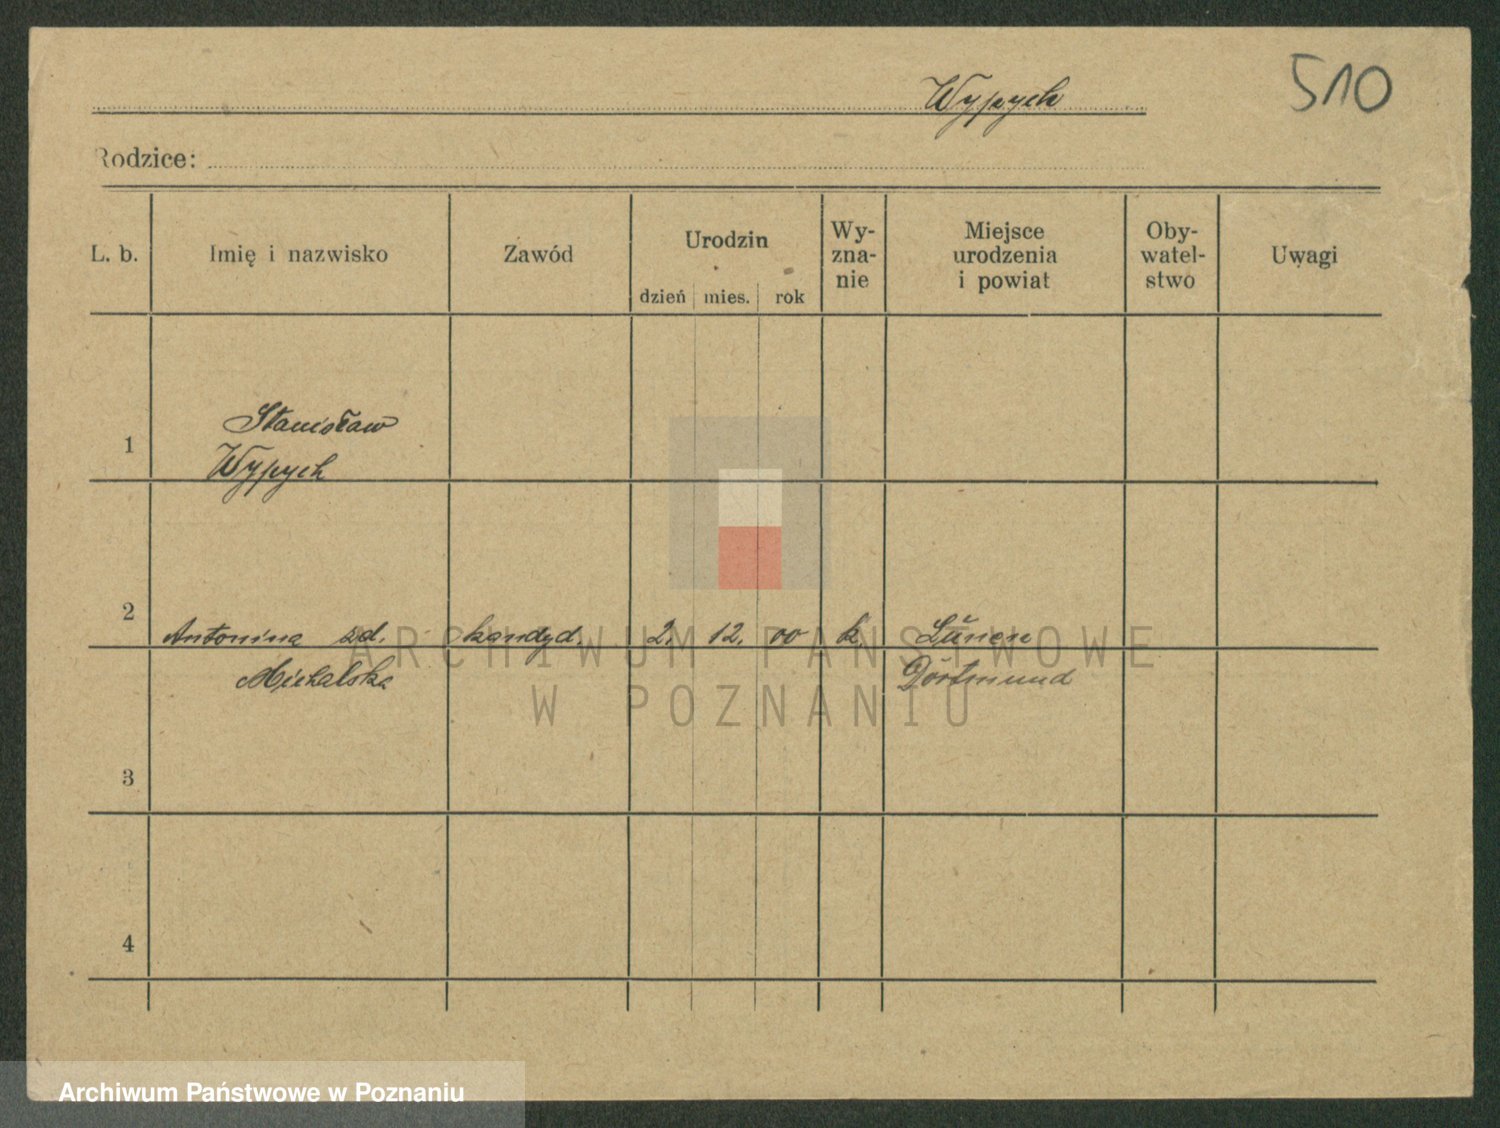 Wypych
510
Rodzice:
L. b. Imię i nazwisko Zawód Urodzin dzień mies. rok Wy-zna-nie Miejsce urodzenia i powiat Oby-watel-stwo Uwagi
1 Stanisław
Wypych
2 Antonina zd. kandyd. 2. 12. 00 k. Lünen
Michalska Dortmund
3
4
ARCHIWUM PAŃSTWOWE
W POZNANIU
Archiwum Państwowe w Poznaniu